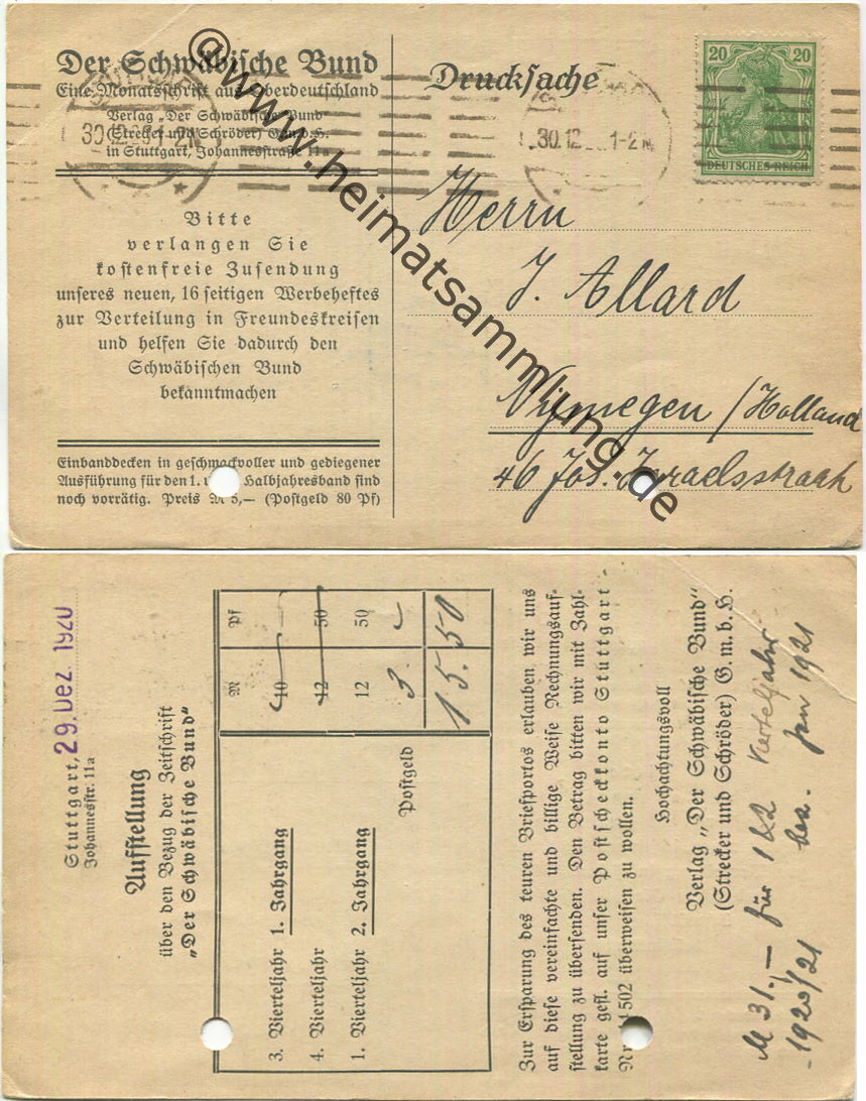 Der Schwäbische Bund
Eine Monatsschrift aus Oberdeutschland
Verlag „Der Schwäbische Bund“
(Strecker und Schröder) G.m.b.H.
in Stuttgart, Johannesstraße 11a
30.12. 1-2 N
Bitte
verlangen Sie
kostenfreie Zusendung
unseres neuen, 16 seitigen Werbeheftes
zur Verteilung in Freundeskreisen
und helfen Sie dadurch den
Schwäbischen Bund
bekanntmachen
Einbanddecken in geschmackvoller und gediegener
Ausführung für den 1. und Halbjahresband sind
noch vorrätig. Preis M 5,— (Postgeld 80 Pf)
Drucksache
30.12 1-2 N
20 20
DEUTSCHES REICH
Herrn
J. Allard
Nijmegen / Holland
46 Jos. Israelsstraat
@www.heimatsammlung.de
Stuttgart, 29. Dez. 1920
Johannesstr. 11a
Aufstellung
über den Bezug der Zeitschrift
„Der Schwäbische Bund“
M Pf
3. Vierteljahr 1. Jahrgang 10 —
4. Vierteljahr 12 50
1. Vierteljahr 2. Jahrgang 12 50
Postgeld 3. —
15.50
Zur Ersparung des teuren Briefportos erlauben wir uns
auf diese vereinfachte und billige Weise Rechnungsauf-
stellung zu übersenden. Den Betrag bitten wir mit Zahl-
karte gefl. auf unser Postscheckkonto Stuttgart
Nr. 1502 überweisen zu wollen.
Hochachtungsvoll
Verlag „Der Schwäbische Bund“
(Strecker und Schröder) G.m.b.H.
M 31,— für 1 & 2 Vierteljahr
1920/21 bez. Jan 1921